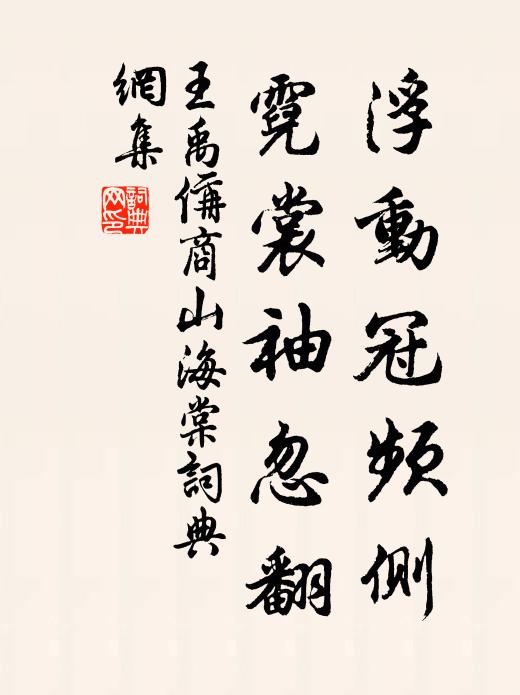 浮動冠頻側
霓裳袖忽翻
王禹偁商山海棠詞典
網集
詞典
网印